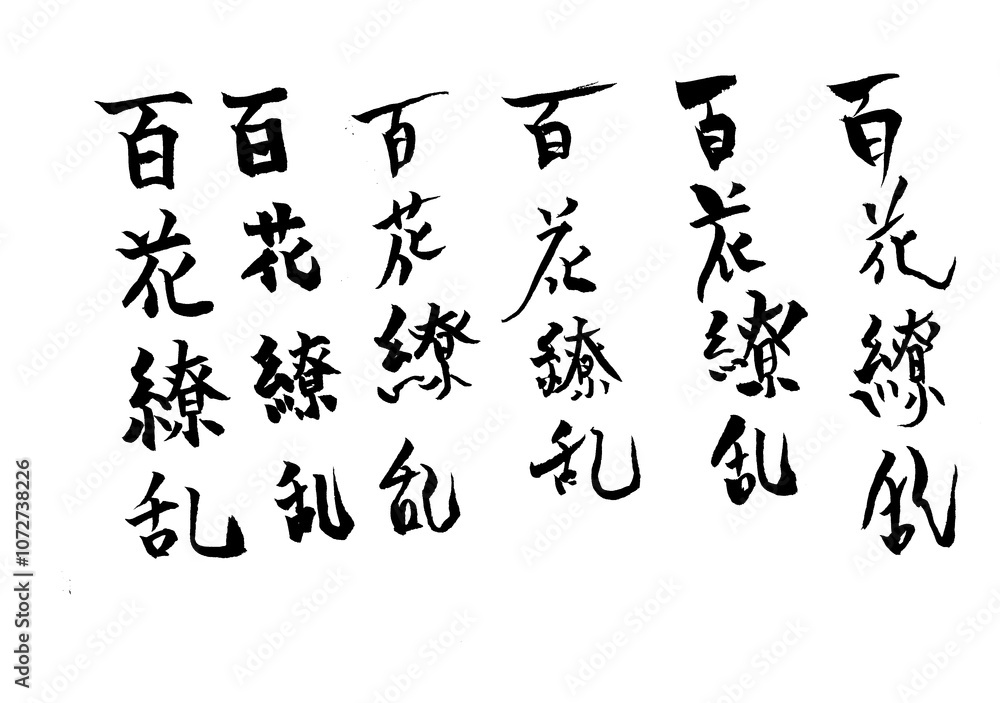 百花繚乱
百花繚乱
百花繚乱
百花鐐乱
百花繚乱
百花繚乱
Adobe Stock | #1072738226